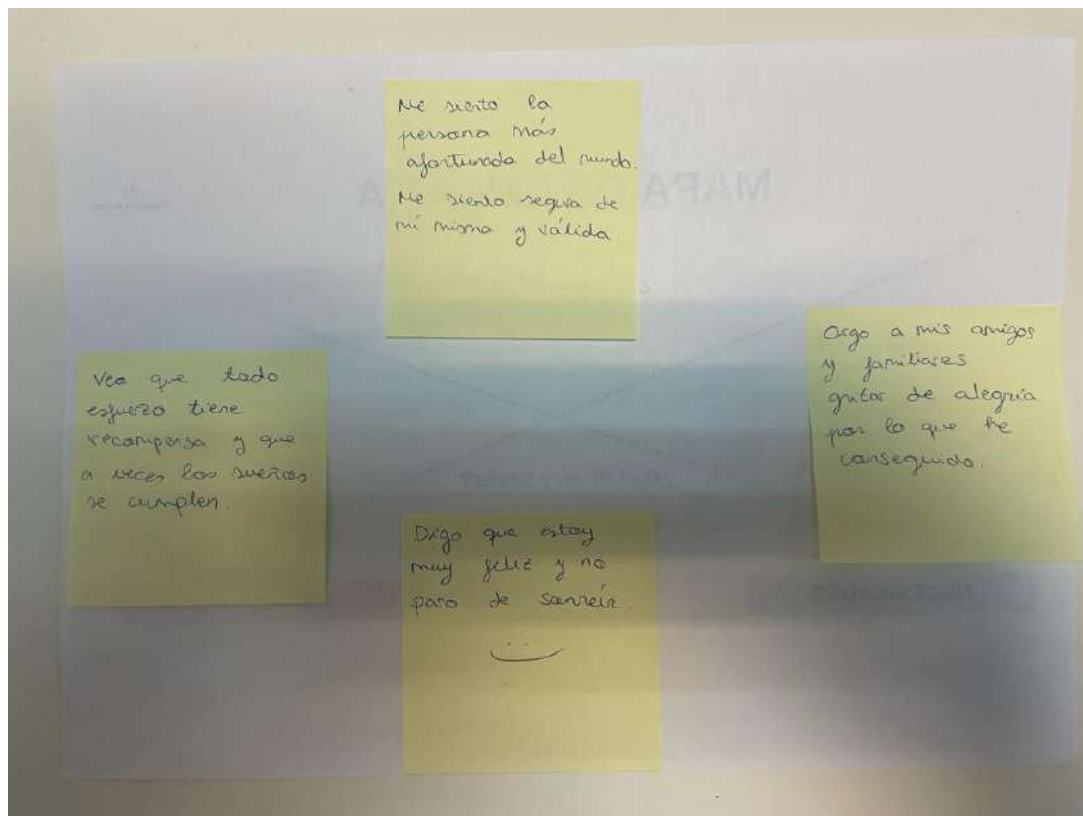 Me siento la
persona más
afortunada del mundo.
Me siento segura de
mí misma y válida.
Veo que todo
esfuerzo tiene
recompensa y que
a veces los sueños
se cumplen.
Oigo a mis amigos
y familiares
gritar de alegría
por lo que he
conseguido.
Digo que estoy
muy feliz y no
paro de sonreír.
MAPA
NECESIDADES